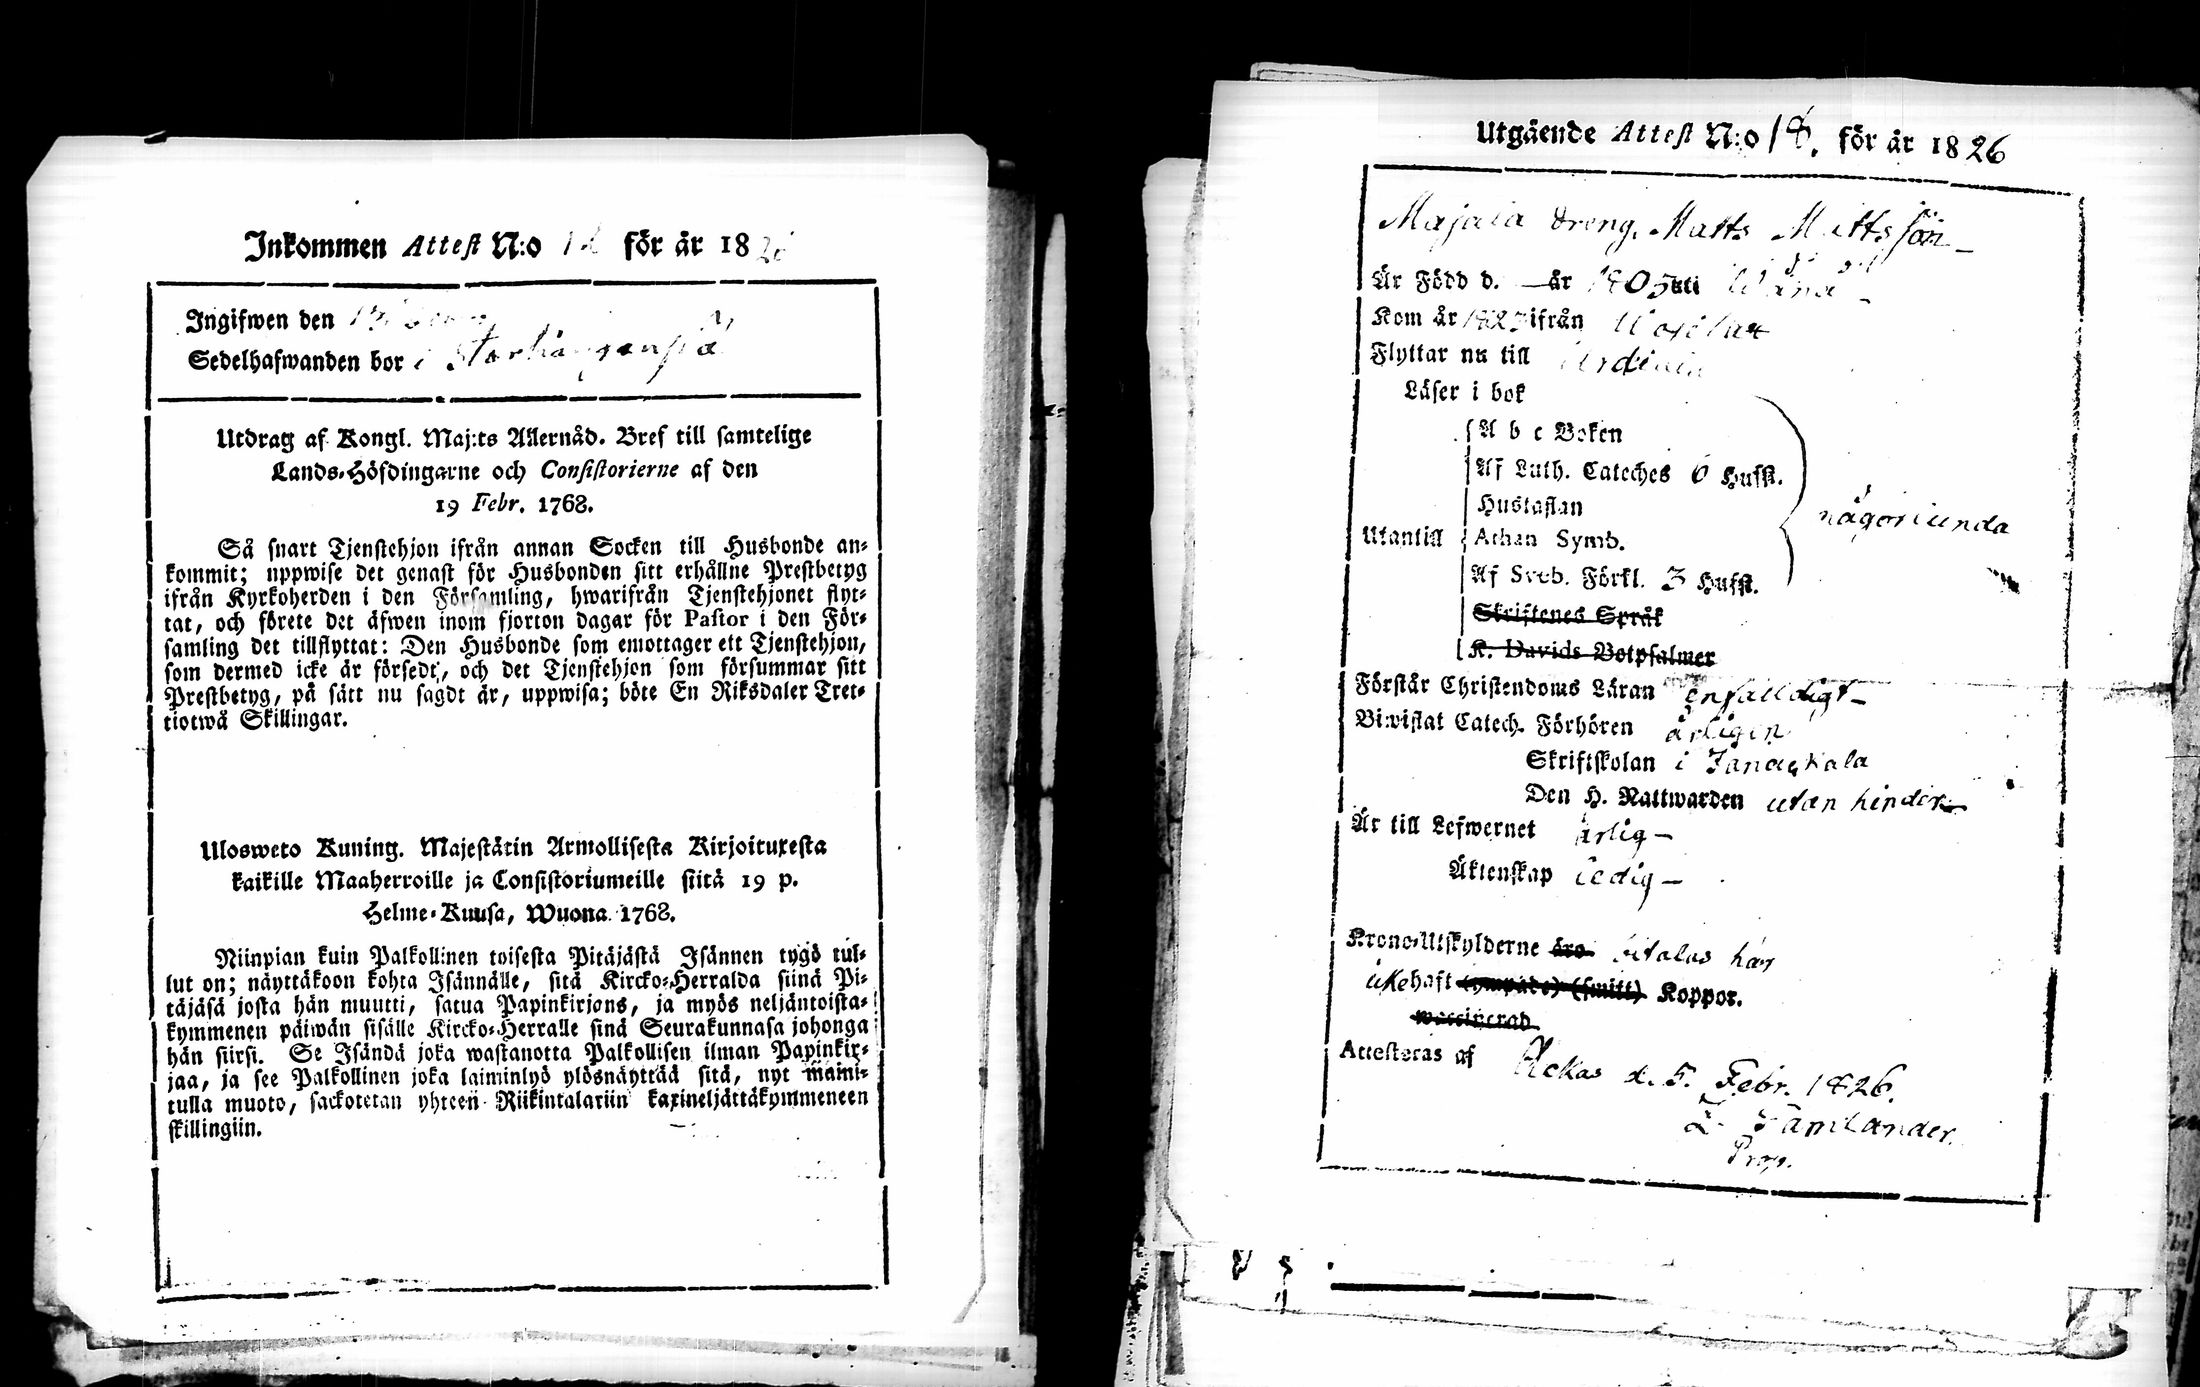 Inkommen Attest N:o 12 för år 182
Ingifwen den 13
Sedelhafwanden bor i
Utdrag af Kongl. Maj:ts Allernåd. Bref till samtelige
Lands-Höfdingarne och Consistorierne af den
19 Febr. 1768.
Så snart Tjenstehjon ifrån annan Socken till Husbonde an-
kommit; uppwise det genast för Husbonden sitt erhållne Prestbetyg
ifrån Kyrkoherden i den Församling, hwarifrån Tjenstehjonet flyt-
tat, och förete det äfwen inom fjorton dagar för Pastor i den För-
samling det tillflyttat: Den Husbonde som emottager ett Tjenstehjon,
som dermed icke är försedt, och det Tjenstehjon som försummar sitt
Prestbetyg, på sätt nu sagdt är, uppwisa; böte En Riksdaler Tret-
tiotwå Skillingar.
Ulosweto Kuning. Majestätin Armollisesta Kirjoituxesta
kaikille Maaherroille ja Consistoriumeille siitä 19 p.
Helme-Kuusa, Wuona 1768.
Niinpian kuin Palkollinen toisesta Pitäjästä Isännen tygö tul-
lut on; näyttäkoon kohta Isännälle, sitä Kircko-Herralda siinä Pi-
täjäsä josta hän muutti, saatua Papinkirjans, ja myös neljäntoista-
kymmenen päiwän sisälle Kircko-Herralle sinä Seurakunnasa johonga
hän siirsi. Se Isändä joka wastanotta Palkollisen ilman Papinkir-
jaa, ja see Palkollinen joka laiminlyö ylösnäyttää sitä, nyt maini-
tulla muoto, sackotetan yhteen Riikintalariin kaxineljättäkymmeneen
skillingiin.
Utgående Attest N:o 18. för år 1826
Majala dreng, Matts Mattsson
Är Född d. — år 1805 uti
Kom år 1823 ifrån
Flyttar nu till
Läser i bok
A b c Boken
Af Luth. Cateches 6 Hufst.
Hustaflan
någorlunda
Utantill Athan Symb.
Af Sveb. Förkl. 3 Hufst.
Skriftenes Språk
K. Davids Botpsalmer
Förstår Christendoms Läran enfaldigt
Biwistat Catech. Förhören årligen
Skriftskolan i Janackala
Den H. Nattwarden utan hinder
Är till Lefwernet ärlig
Äktenskap ledig
Krono-Utskylderne äro betalas här
icke haft (ympade) (smitt) Koppor.
waccinerad
Attesteras af Ackas d. 5. Febr. 1826.
Tamlander.
Prop.